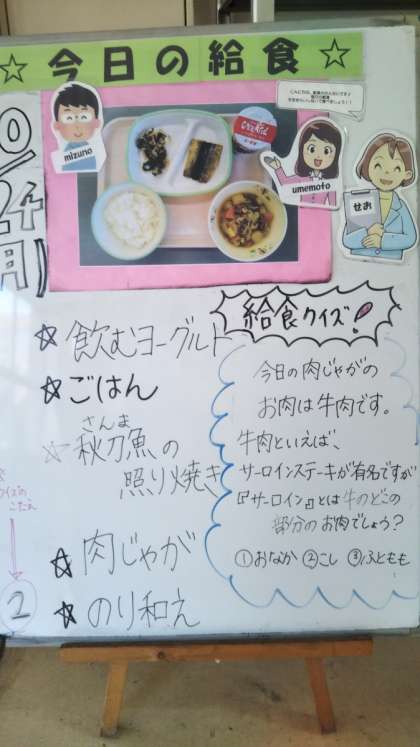 ☆ 今日の給食 ☆
10/24(月)
mizuno
umemoto
せお
☆飲むヨーグルト
☆ごはん
さんま
☆秋刀魚の
照り焼き
☆肉じゃが
☆のり和え
給食クイズ!
今日の肉じゃがの
お肉は牛肉です。
牛肉といえば、
サーロインステーキが有名ですが
『サーロイン』とは牛のどこの
部分のお肉でしょう?
①おなか ②こし ③ふともも
クイズの、
こたえ
2